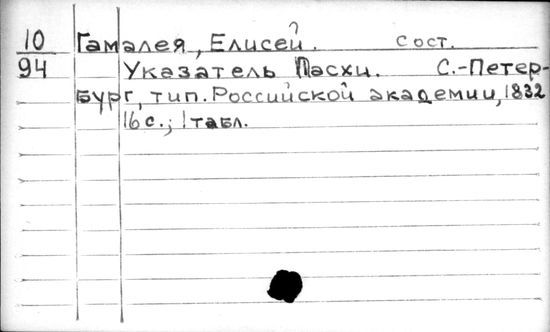 10 Гамалея, Елисей. сост.
94 Указатель Пасхи. С.-Петер-
бург, тип. Российской академии, 1832
16 с.; 1 табл.